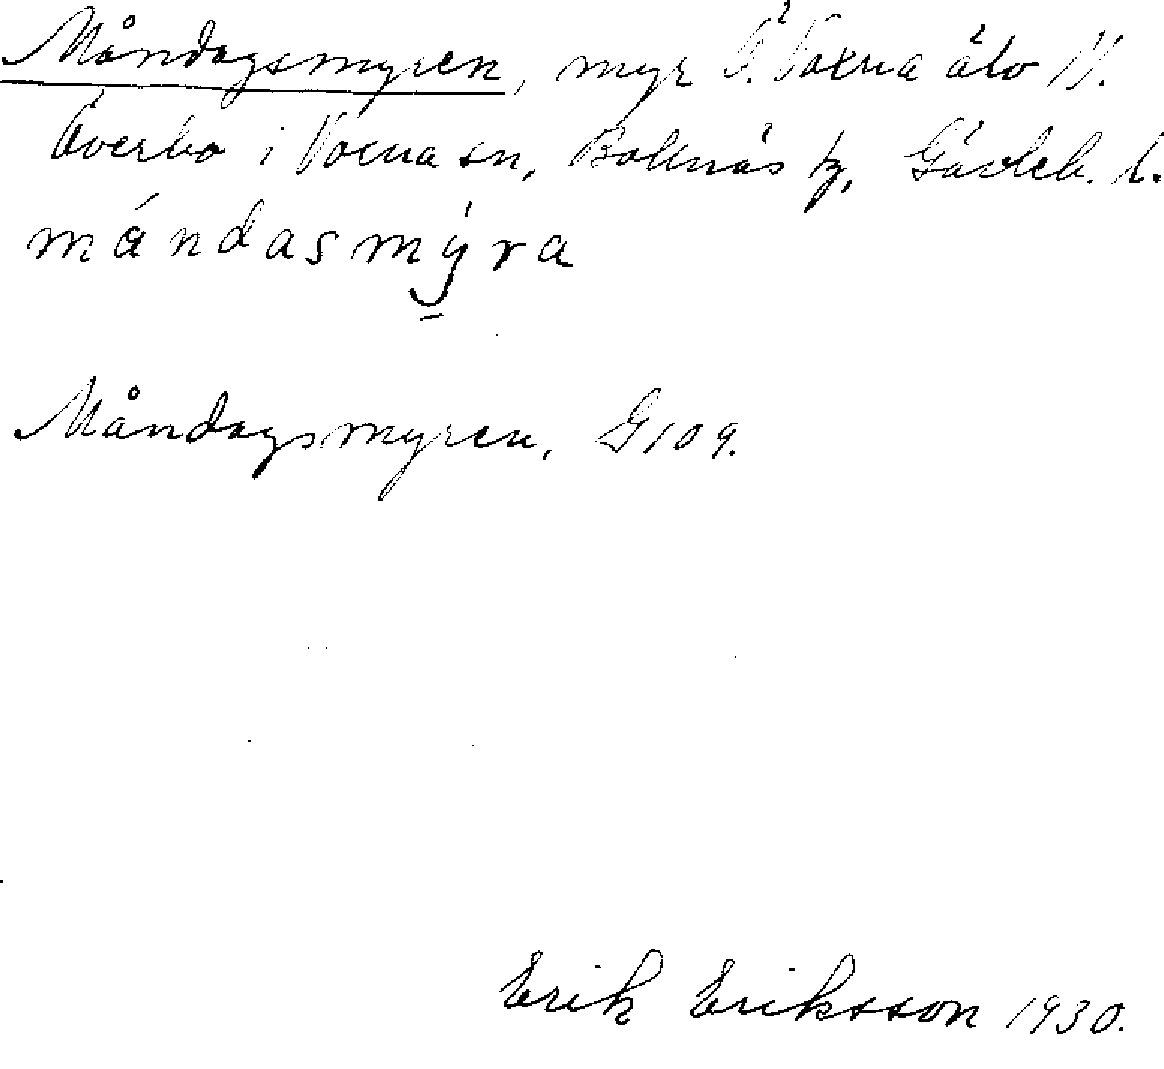 Måndagsmyren, myr Ö. Voxna älv N.
Överbo i Voxna sn, Bollnäs tg, Gävleb. l.
mándasmýra
Måndagsmyren, G109.
Erik Eriksson 1930.